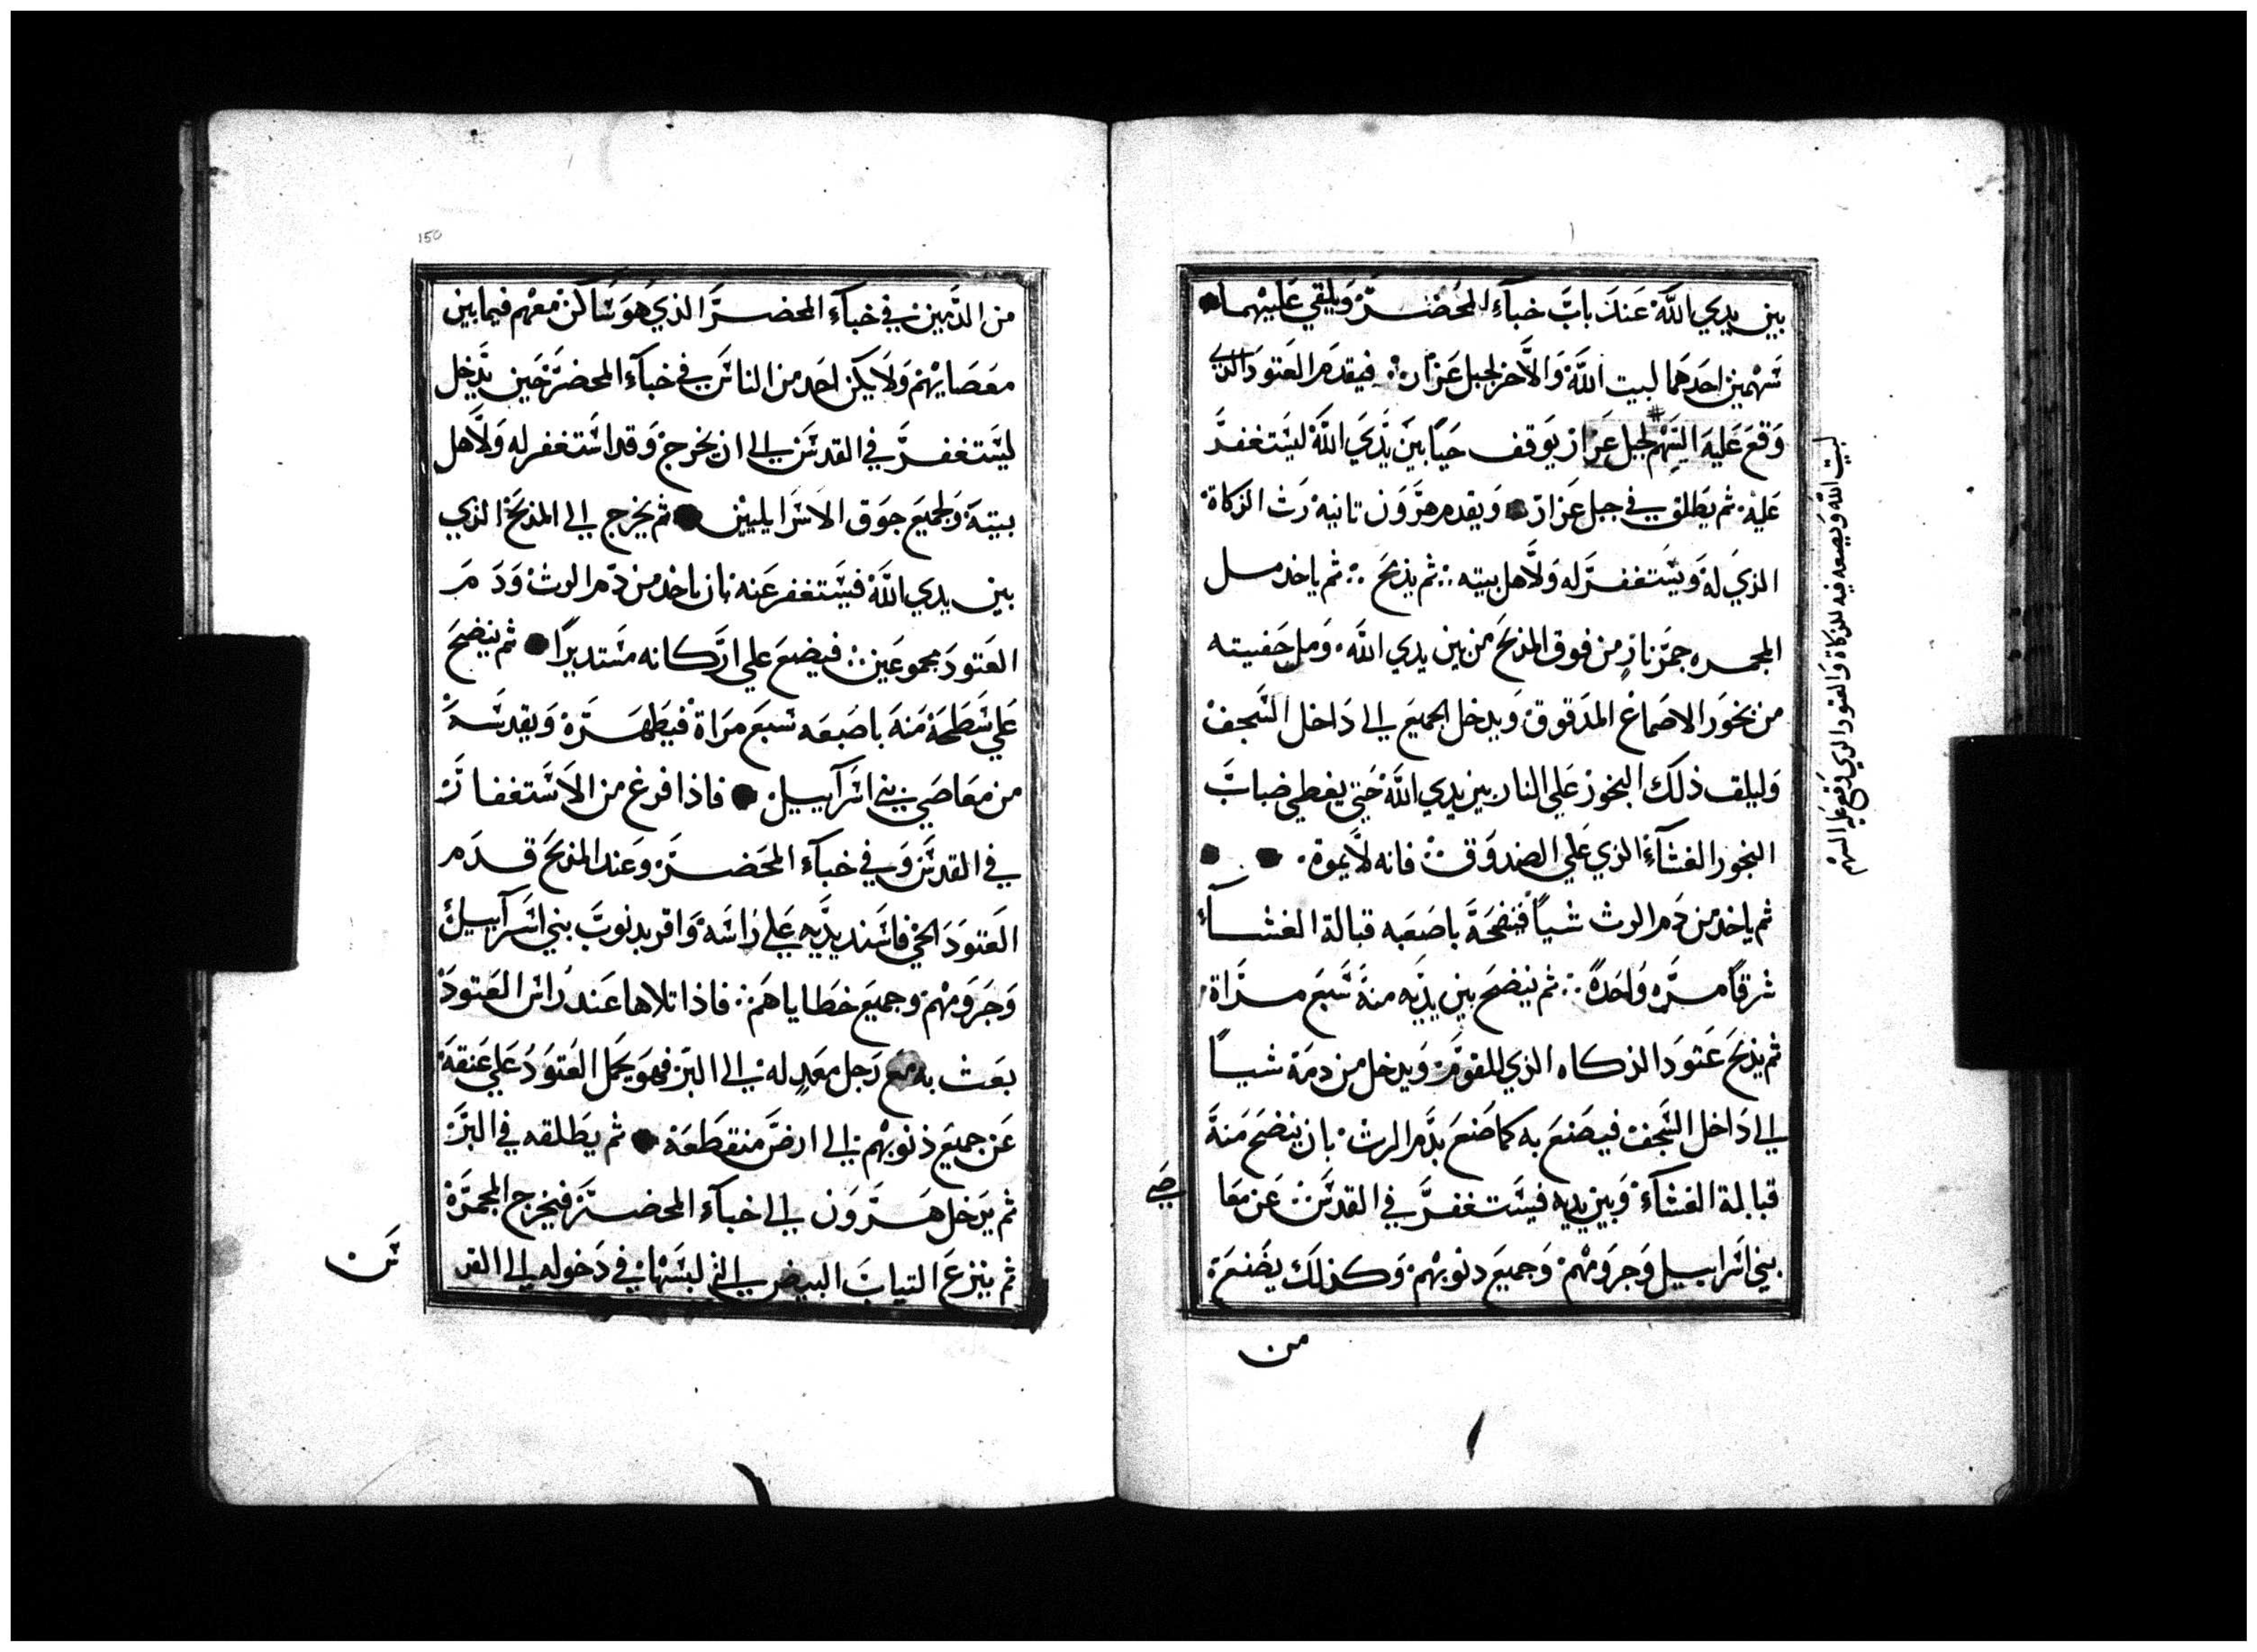 بين يدي الله عند باب خباء المحضر ويلقي عليهما
سهمين احدهما لبيت الله والاخر لجبل عزاز فيقدم العتود الذي
وقع عليه السهم لجبل عزاز يوقف حيا بين يدي الله ليستغفر
عليه ثم يطلق في جبل عزاز ويقدم هرون تانيه رث الزكاة
الذي له ويستغفر له ولاهل بيته ثم يذبح ثم ياخد مل
المجمره جمر نار من فوق المذبح من بين يدي الله ومل حفيته
من بخور الاصماغ المدقوق ويدخل الجميع الي داخل السجف
وليلق ذلك البخور علي النار بين يدي الله حتي يغطي ضباب
البخور الغشآء الذي علي الصندوق فانه لا يموة
ثم ياخد من دم الرث شيا فينضحة باصعبه قبالة الغشآء
شرقا مره واحدة ثم ينضح بين يديه منة سبع مراة
ثم يذبح عتود الذكاه الذي للقوم ويدخل من دمة شيا
الي داخل السجف فيصنع به كما صنع بدم الرث بان ينضح منة
قبالة الغشآء وبين يديه فيستغفر في القدس عن معا
صي
بني اسراييل وجرومهم وجميع دنوبهم وكذلك يصنع
من
لبيت الله ويصنعه فيه للزكاة والعتود الذي وقع عليه السهم
150
من الذين في خبآء المحضر الذي هو ساكن معهم فيما بين
معصايهم ولا يكن احد من الناس في خبآء المحضر حين يدخل
ليستغفر في القدس الي ان يخرج وقد استغفر له ولاهل
بيتة ولجميع جوق الاسرايليين ثم يخرج الي المذبح الذي
بين يدي الله فيستغفر عنه بان ياخد من دم الرث ودم
العتود مجموعين فيضع علي اركانه مستديرا ثم ينضح
علي سطحة منه باصبعه سبع مراة فيطهرة ويقدسه
من معاصي بني اسرآييل فاذا فرغ من الاستغفار
في القدس وفي خبآء المحضر وعند المذبح قدم
العتود الحي فاسند يديه علي راسه واقر بدنوب بني اسرآييل
وجرومهم وجميع خطاياهم فاذا تلاها عند راس العتود
بعث به مع رجل معد له الي البر فهو يحمل العتود علي عنقة
عن جميع ذنوبهم الي ارض منقطعة ثم يطلقه في البر
ثم يدخل هرون الي خبآء المحضر فيخرج المجمرة
ثم ينزع التياب البيض التي لبسها في دخوله الي القد
س